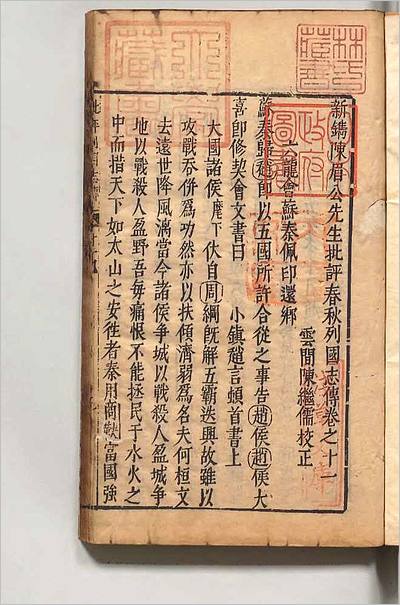 新鐫陳眉公先生批評春秋列國志傳卷之十一
雲間陳繼儒校正
六龍會蘇秦佩印還鄉
蘇秦歸趙即以五國所許合從之事告趙侯趙侯大
喜即修契會文書曰　小鎮趙言頓首書上
大國諸侯麾下伏自周綱旣解五霸迭興故雖以
攻戰吞併爲功然亦以扶傾濟弱爲名夫何桓文
去遠世降風漓當今諸侯爭城以戰殺人盈城爭
地以戰殺人盈野吾每痛恨不能拯民于水火之
中而措天下如太山之安徃者秦用商鞅富國強
林氏
藏書